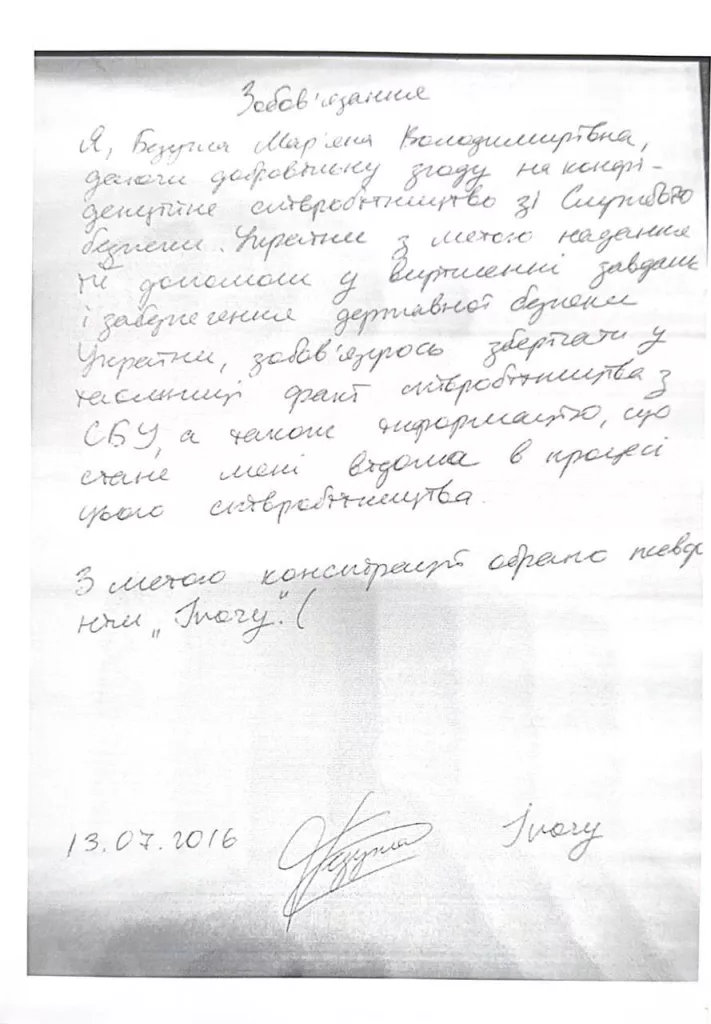 Зобов'язання
Я, Безугла Мар'яна Володимирівна,
даючи добровільну згоду на конфі-
денційне співробітництво зі Службою
безпеки України з метою надання
їй допомоги у вирішенні завдань
і забезпечення державної безпеки
України, зобов'язуюсь зберігати у
таємниці факт співробітництва з
СБУ, а також інформацію, що
стане мені відома в процесі
цього співробітництва.
З метою конспірації обрано псевдо
нім „Ivory". (
13.07.2016 Безугла Ivory